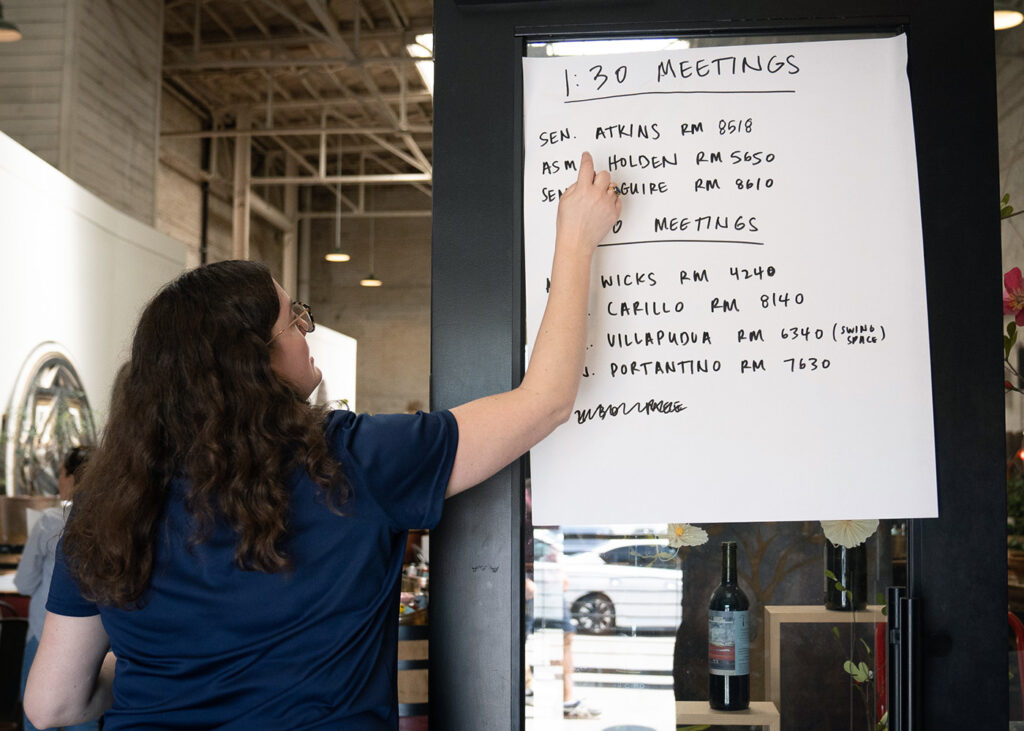 1:30 MEETINGS
SEN. ATKINS RM 8518
ASM HOLDEN RM 5650
SEN GUIRE RM 8610
0 MEETINGS
WICKS RM 4240
CARILLO RM 8140
VILLAPUDUA RM 6340 (SWING SPACE)
. PORTANTINO RM 7630